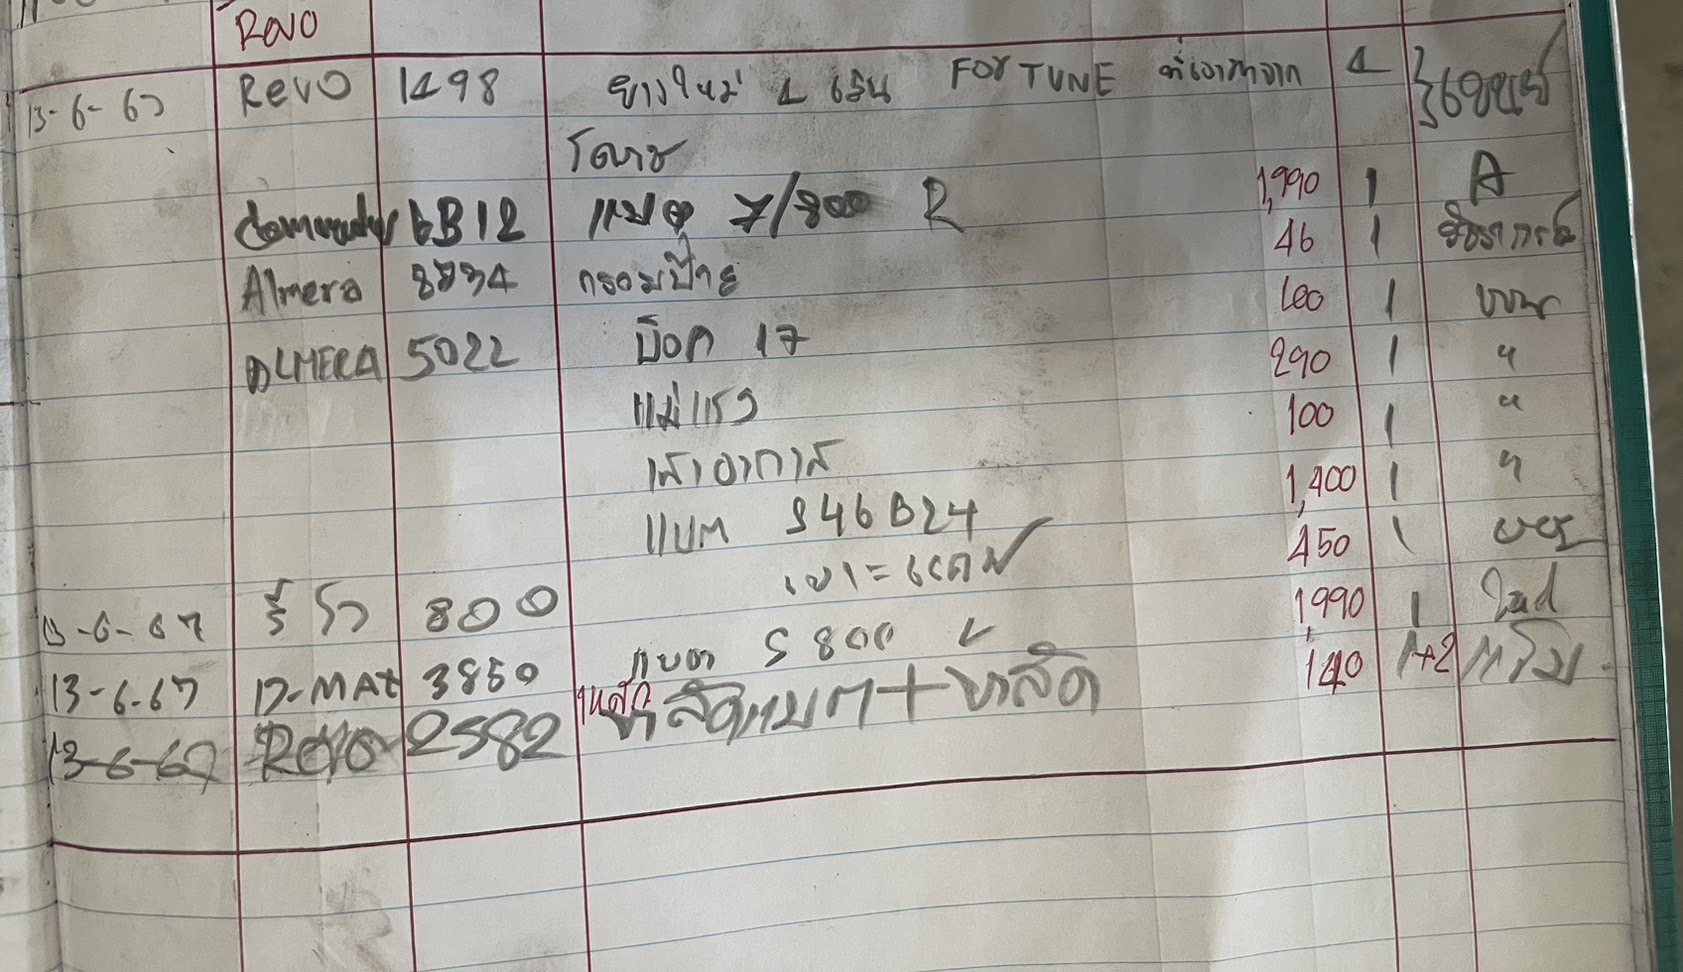 Revo
13-6-67 Revo 1498 ยางใหม่ 4 เส้น FORTUNE ที่เอามาจาก 4
โคราช
commuter 6B12 แบต 7/800 R 1,990 1 A
Almera 8734 กรอบป้าย 46 1
ALMERA 5022 บ๊อก 17 100 1
แม่แรง 290 1 "
เสาอากาศ 100 1 "
แบต S46B24 1,400 1 "
เบาะ 450 1
13-6-67 รีโว่ 800 1,990 1
13-6-67 D-MAX 3850 แบต S 800 140 1+2
13-6-67 Revo 2582 ขาลัดแบต + ขาลัด